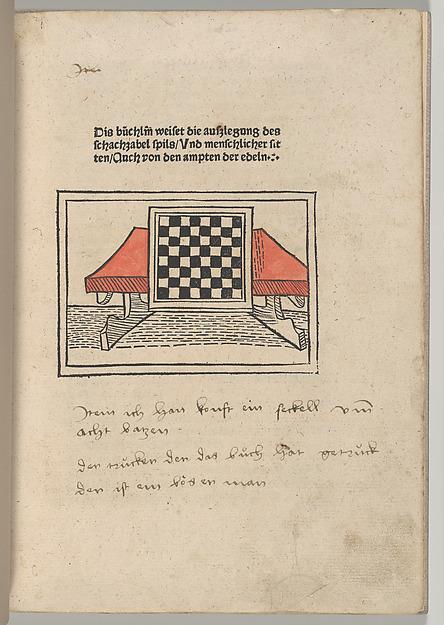 Dis büchlin weiset die auszlegung des
schachzabel spils/Vnd menschlicher sit
ten/Auch von den ampten der edeln.:.
Item ich han konft ein seckell
acht batzen
der trücker der das buch hat getruck
der ist ein böser man